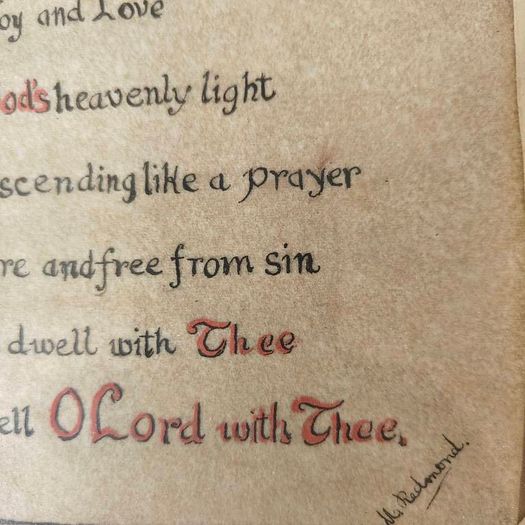 oy and Love
od's heavenly light
scending like a prayer
re and free from sin
dwell with Thee
ell O Lord with Thee.
M. Redmond.